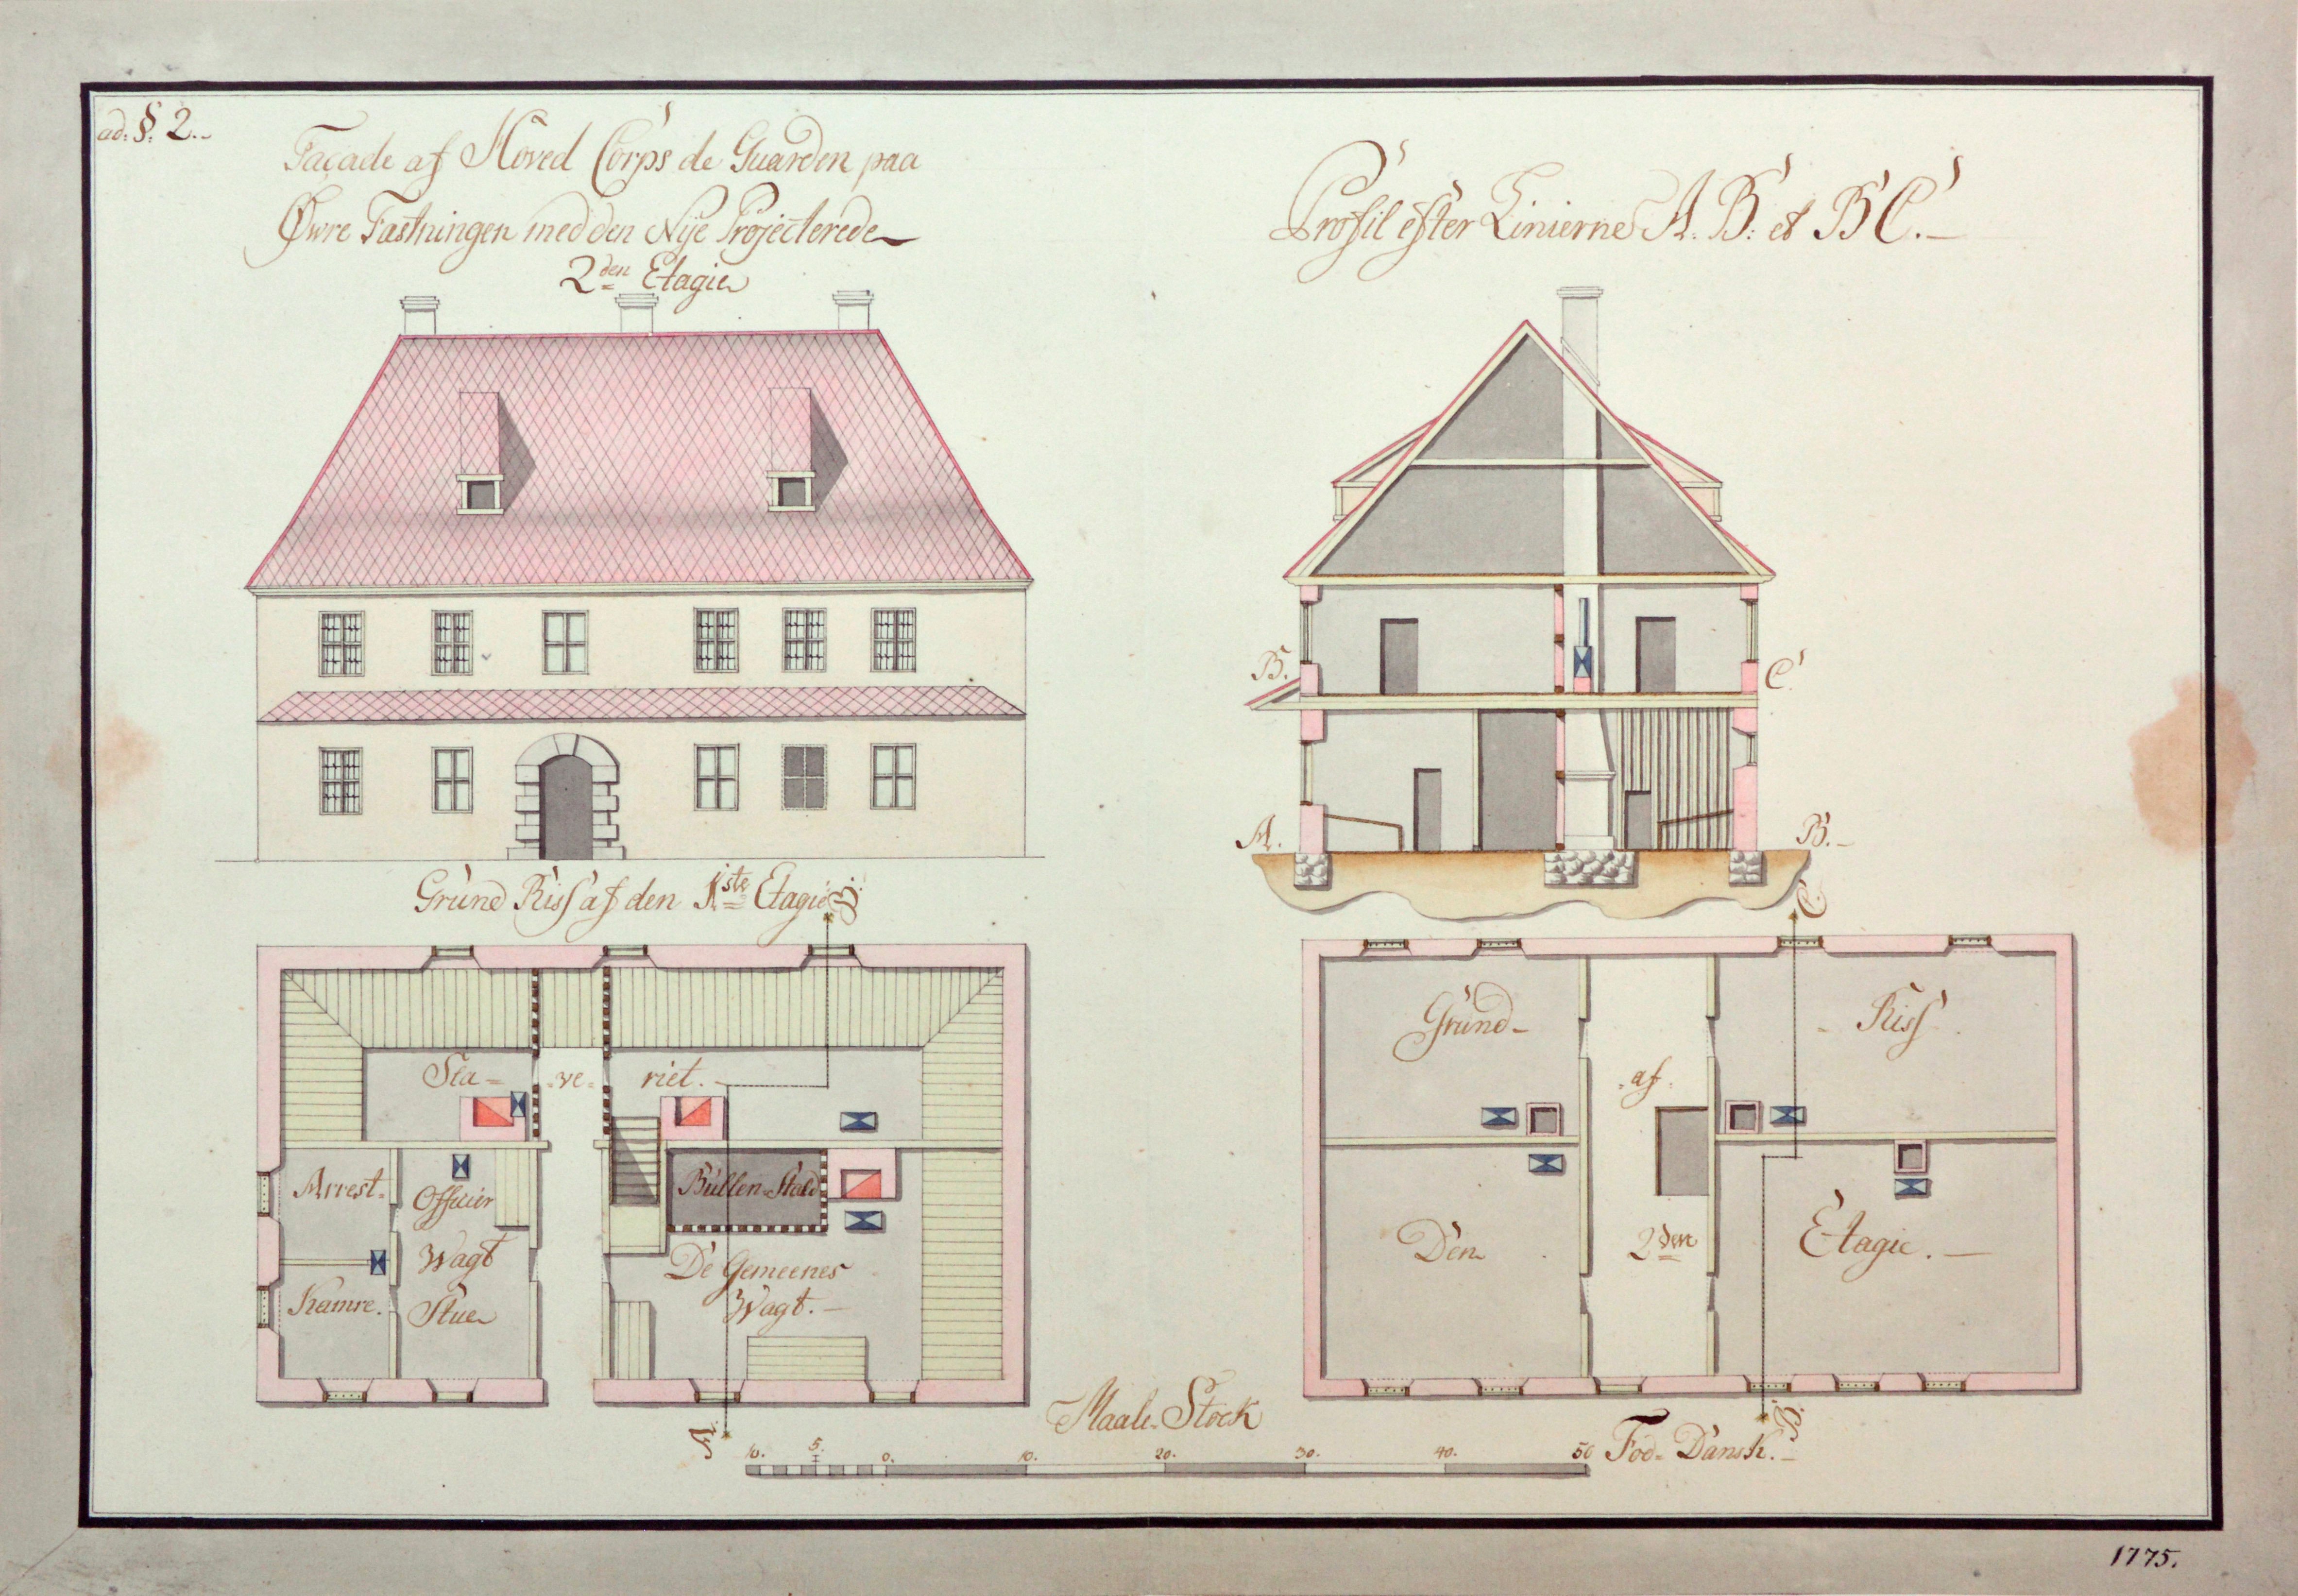 ad. §. 2.
Façade af Hoved Corps de Guarden paa
Øwre Fæstningen med den Nÿe Projecterede
2den Etagie
Profil efter Linierne A. B. et B C.
B.
C.
A.
B.
Grund Riss af den 1ste Etagie
B.
Sla- -ve- riet.
Arrest-
Kamre.
Officier
Wagt
Stue
Bullen-Stald
De Gemeenes
Wagt.
A.
C.
Grund- - Riss
-af-
Den 2den Etagie.
B.
Maale-Stock
10. 5. 0. 10. 20. 30. 40. 50 Fod-Dansk.
1775.